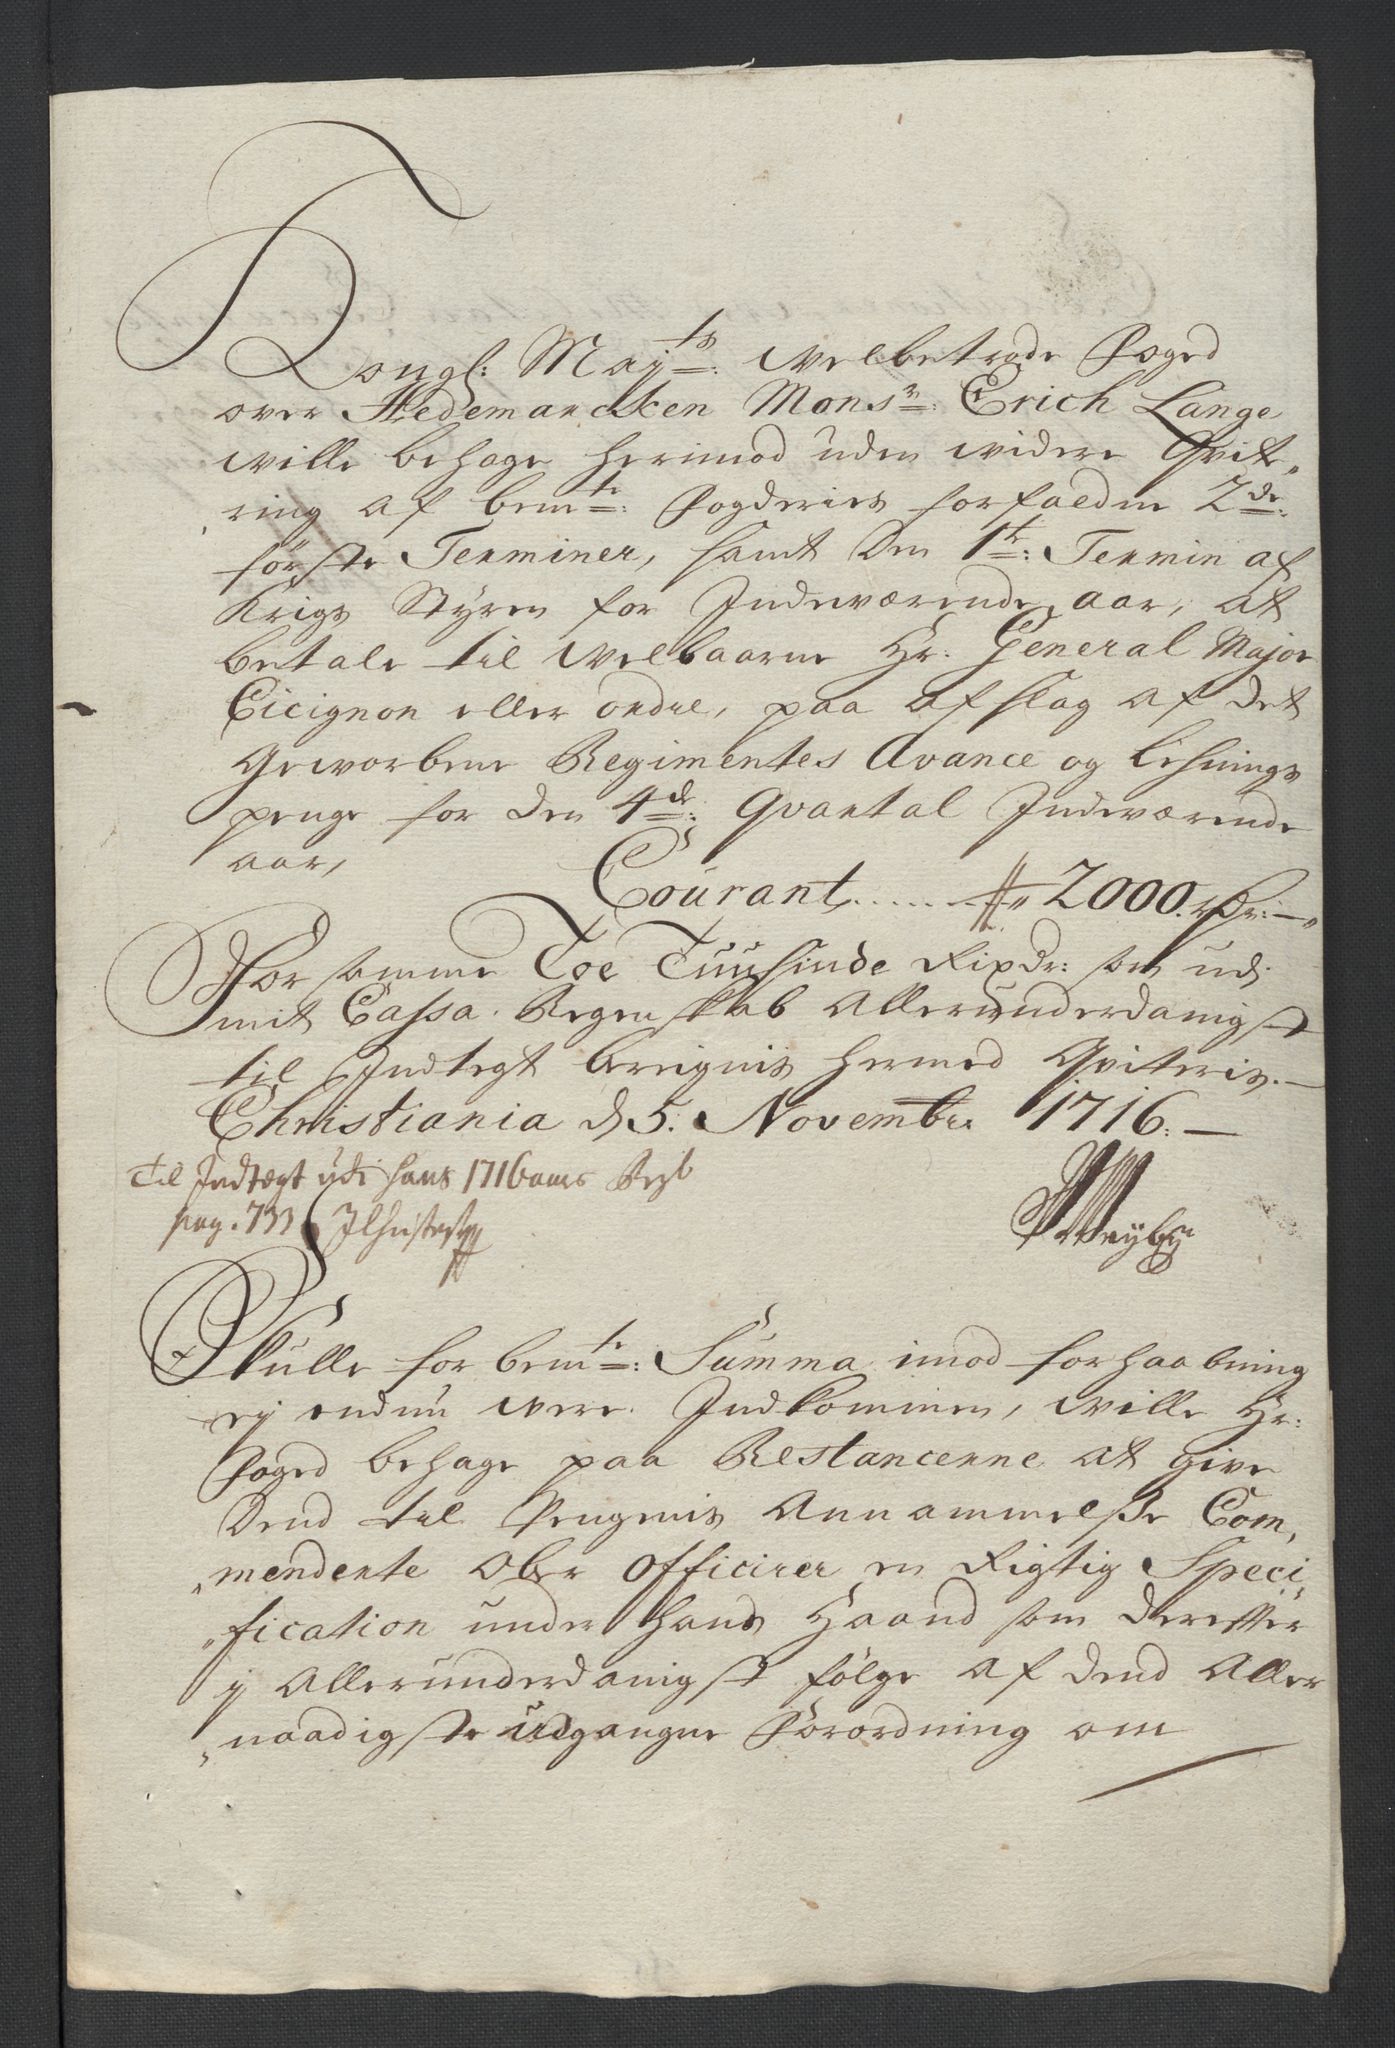 Kongl: Maÿ.ts: welbetrode Foged
over Hedemarcken Mons.r: Erich Lange
wille behage herimod uden widere Qvit-
ring af bem.te: Fogderies forfaldne 2.de:
første Terminer, samt den 1.te: Termin af
Krigs Styren for Indeværende aar, at
betale til welbaarne Hr: General Major
Cicignon eller ordre, paa afslag af det
Geworbene Regimentes Avance og Lehnings
penge for den 4.de: Qvartal Indeværende
aar,
Courant ...... 2000. rdr: —
For samme Toe Tuusinde Rixdr: som udi
mit Cassa Regenskab Allerunderdanigst
til Indtegt bereignis hermed Qviteris. —
Christiania d 5. Novembr: 1716. —
Til Indtægt udi hans 1716 aars Regb
pag. 733
Skulle for bem.te: Summa imod forhaabning
eÿ endnu were Indkommen, wille Hr:
Foged behage paa Restancerne at give
dend til Pengenis Annammelsse Com-
mendente Ober Officirer en Rigtig Speci-
fication under hans Haand som derefter
ÿ Allerunderdanigst følge af dend Aller
naadigste udgangne Forordning om